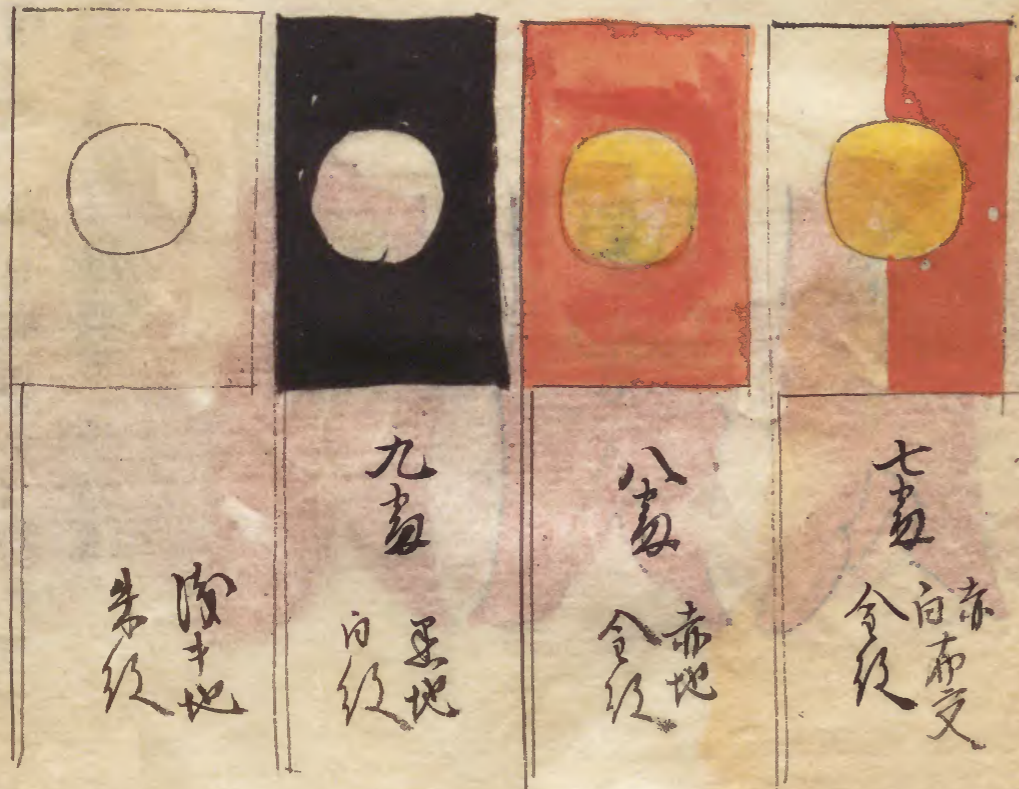 七番
赤白布交
金紋
八番
赤地
金紋
九番
黒地
白紋
浅キ地
朱紋